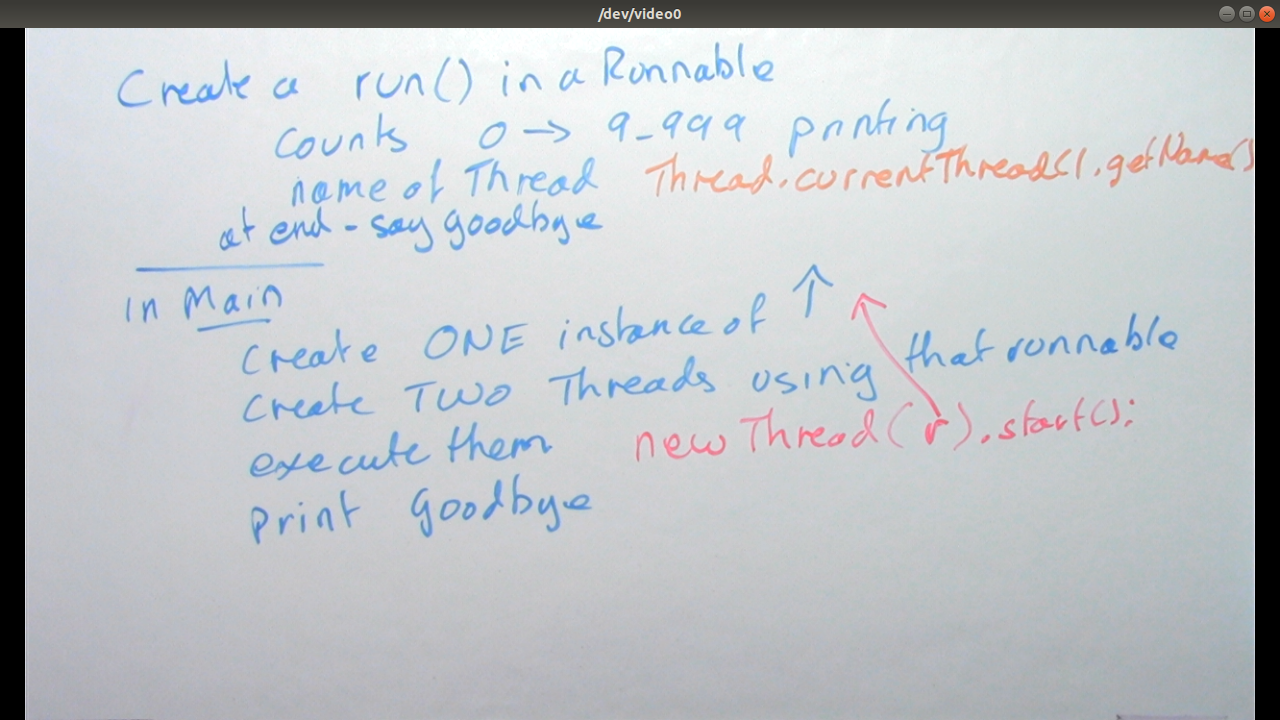 /dev/video0
Create a run() in a Runnable
Counts 0 → 9_999 printing
name of Thread Thread.currentThread().getName()
at end - say goodbye
in Main
Create ONE instance of ↑
Create TWO Threads using that runnable
execute them new Thread(r).start();
print Goodbye